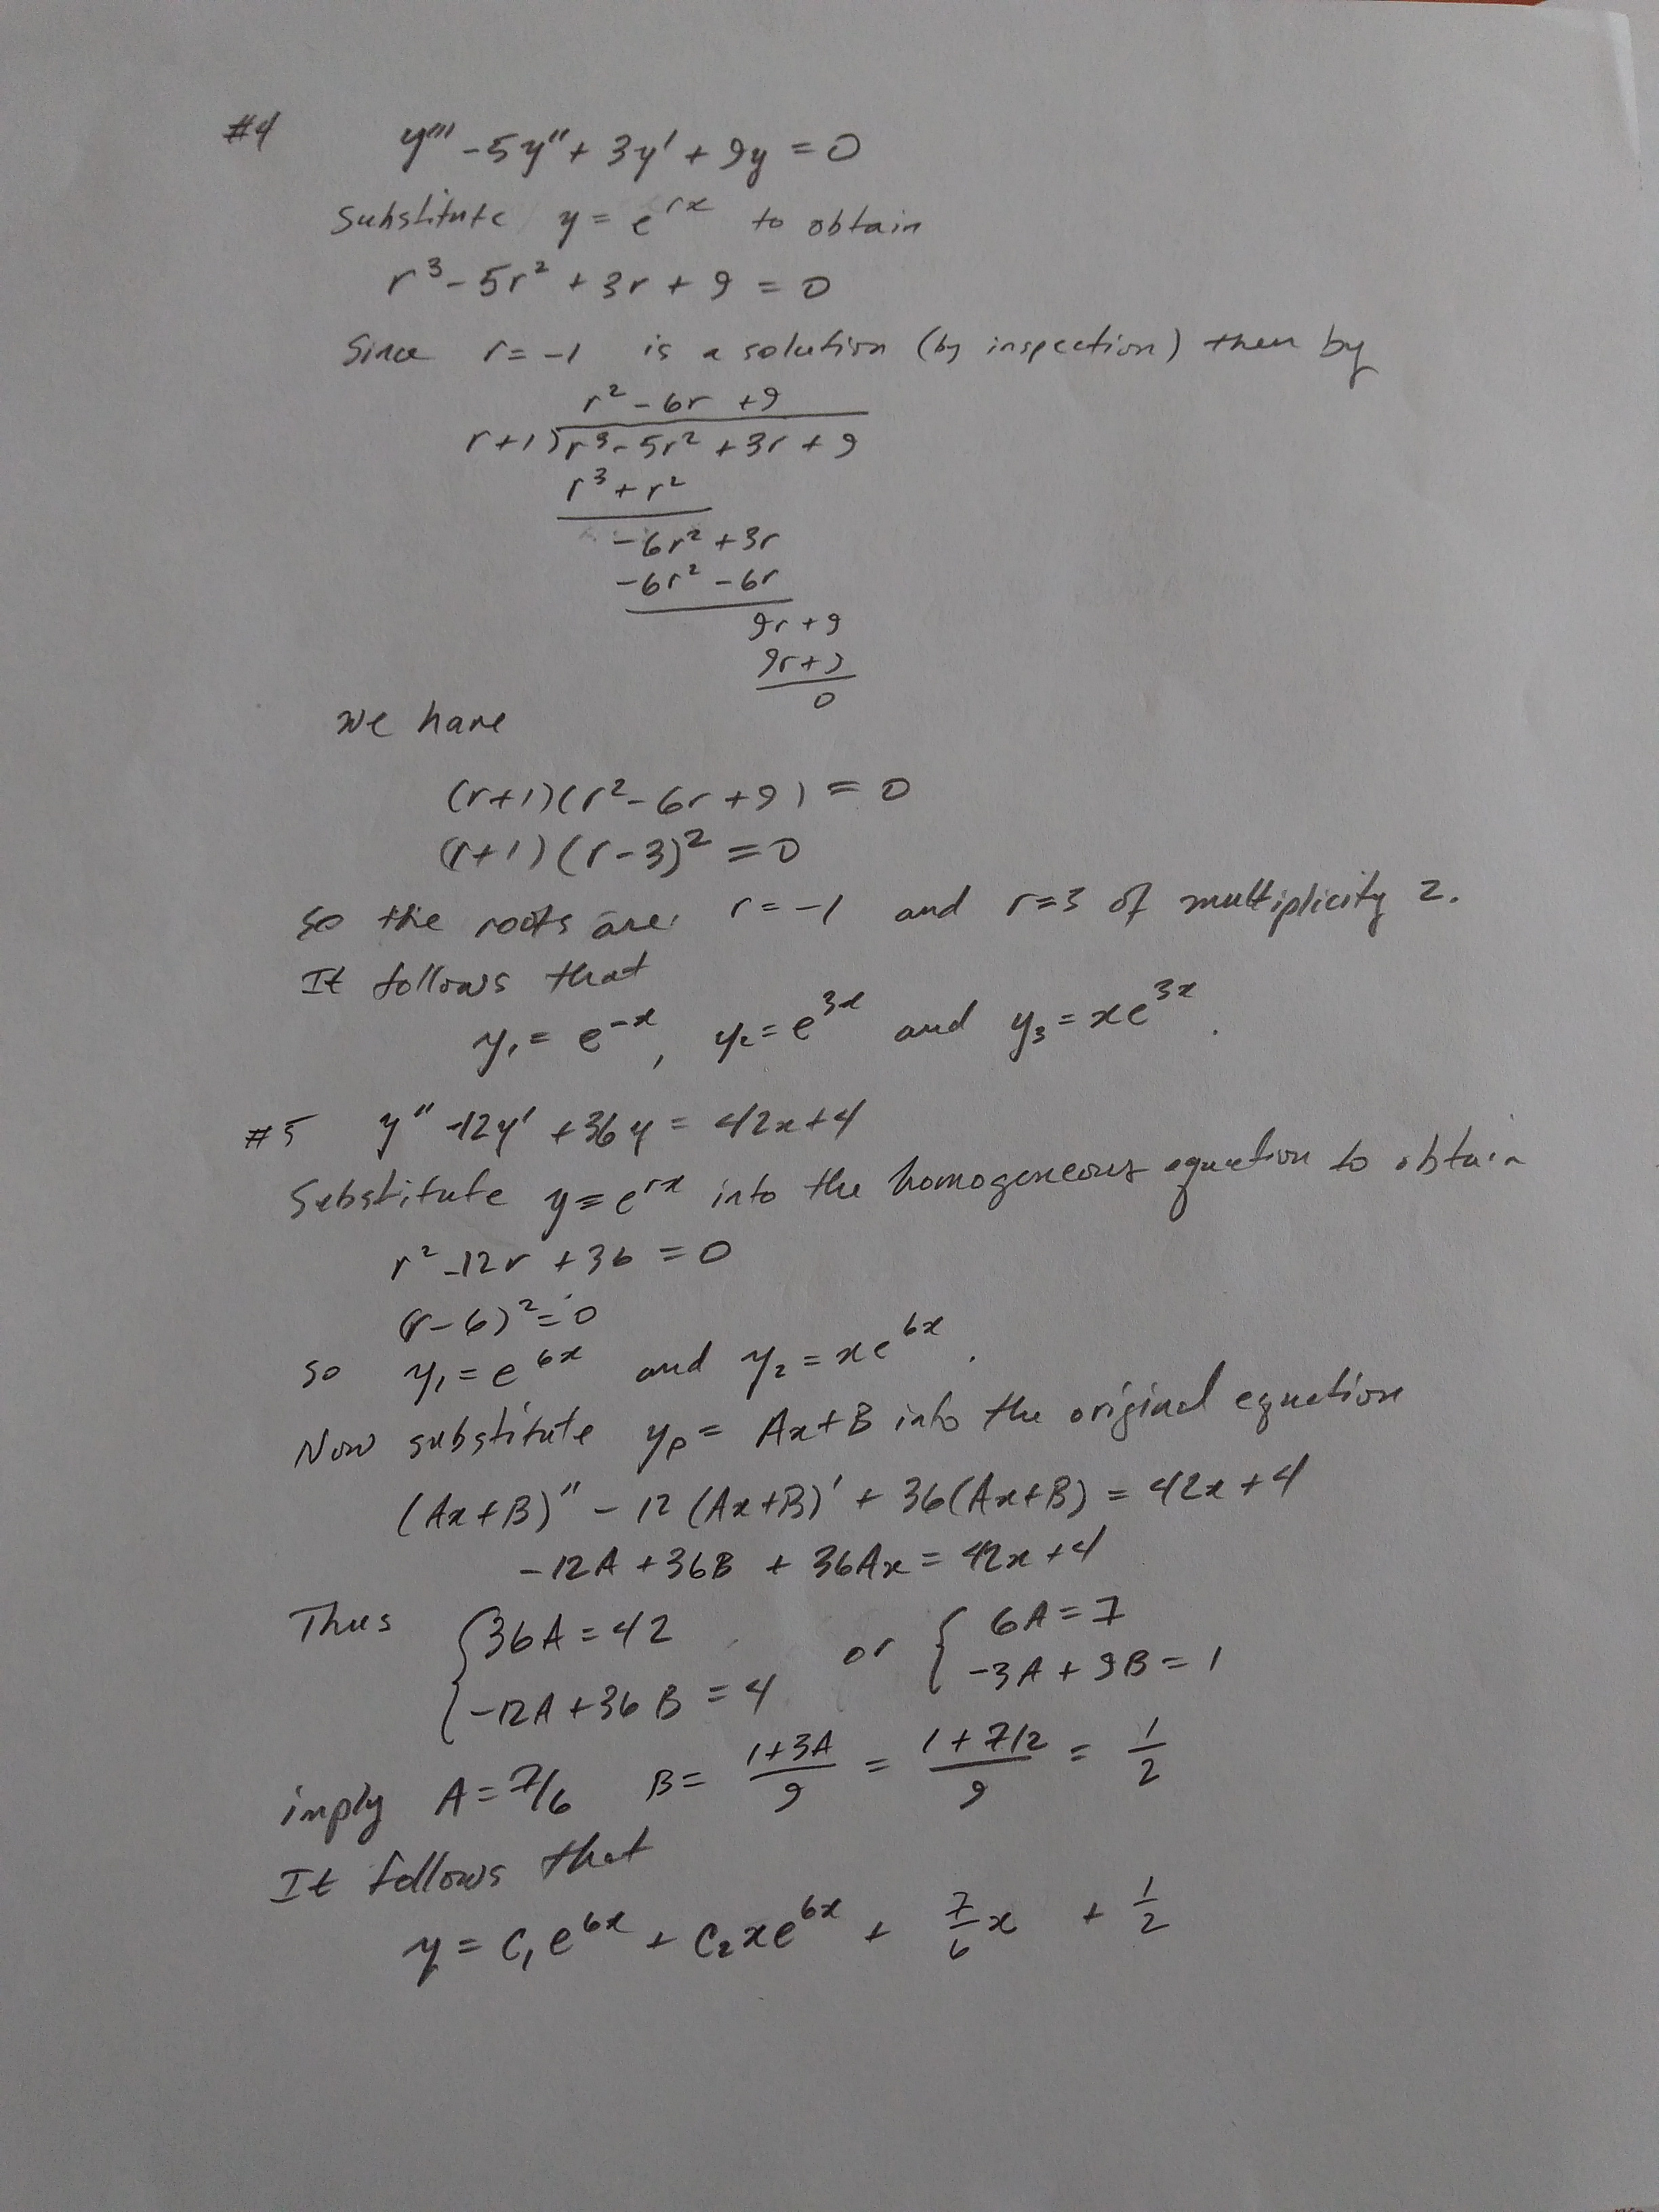 #4 y''' - 5y'' + 3y' + 9y = 0
Substitute y = e^{rx} to obtain
r³ - 5r² + 3r + 9 = 0
Since r = -1 is a solution (by inspection) then by
r² - 6r + 9
r+1) r³ - 5r² + 3r + 9
r³ + r²
-6r² + 3r
-6r² - 6r
9r + 9
9r + 9
0
we have
(r+1)(r² - 6r + 9) = 0
(r+1)(r-3)² = 0
So the roots are: r = -1 and r = 3 of multiplicity 2.
It follows that
y₁ = e^{-x}, y₂ = e^{3x} and y₃ = xe^{3x}.
#5 y'' - 12y' + 36y = 42x + 4
Substitute y = e^{rx} into the homogeneous equation to obtain
r² - 12r + 36 = 0
(r-6)² = 0
so y₁ = e^{6x} and y₂ = xe^{6x}.
Now substitute y_p = Ax+B into the original equation
(Ax+B)'' - 12(Ax+B)' + 36(Ax+B) = 42x + 4
-12A + 36B + 36Ax = 42x + 4
Thus { 36A = 42 or { 6A = 7
-12A + 36B = 4 -3A + 9B = 1
imply A = 7/6 B = (1+3A)/9 = (1+7/2)/9 = 1/2
It follows that
y = c₁e^{6x} + c₂xe^{6x} + 7/6 x + 1/2